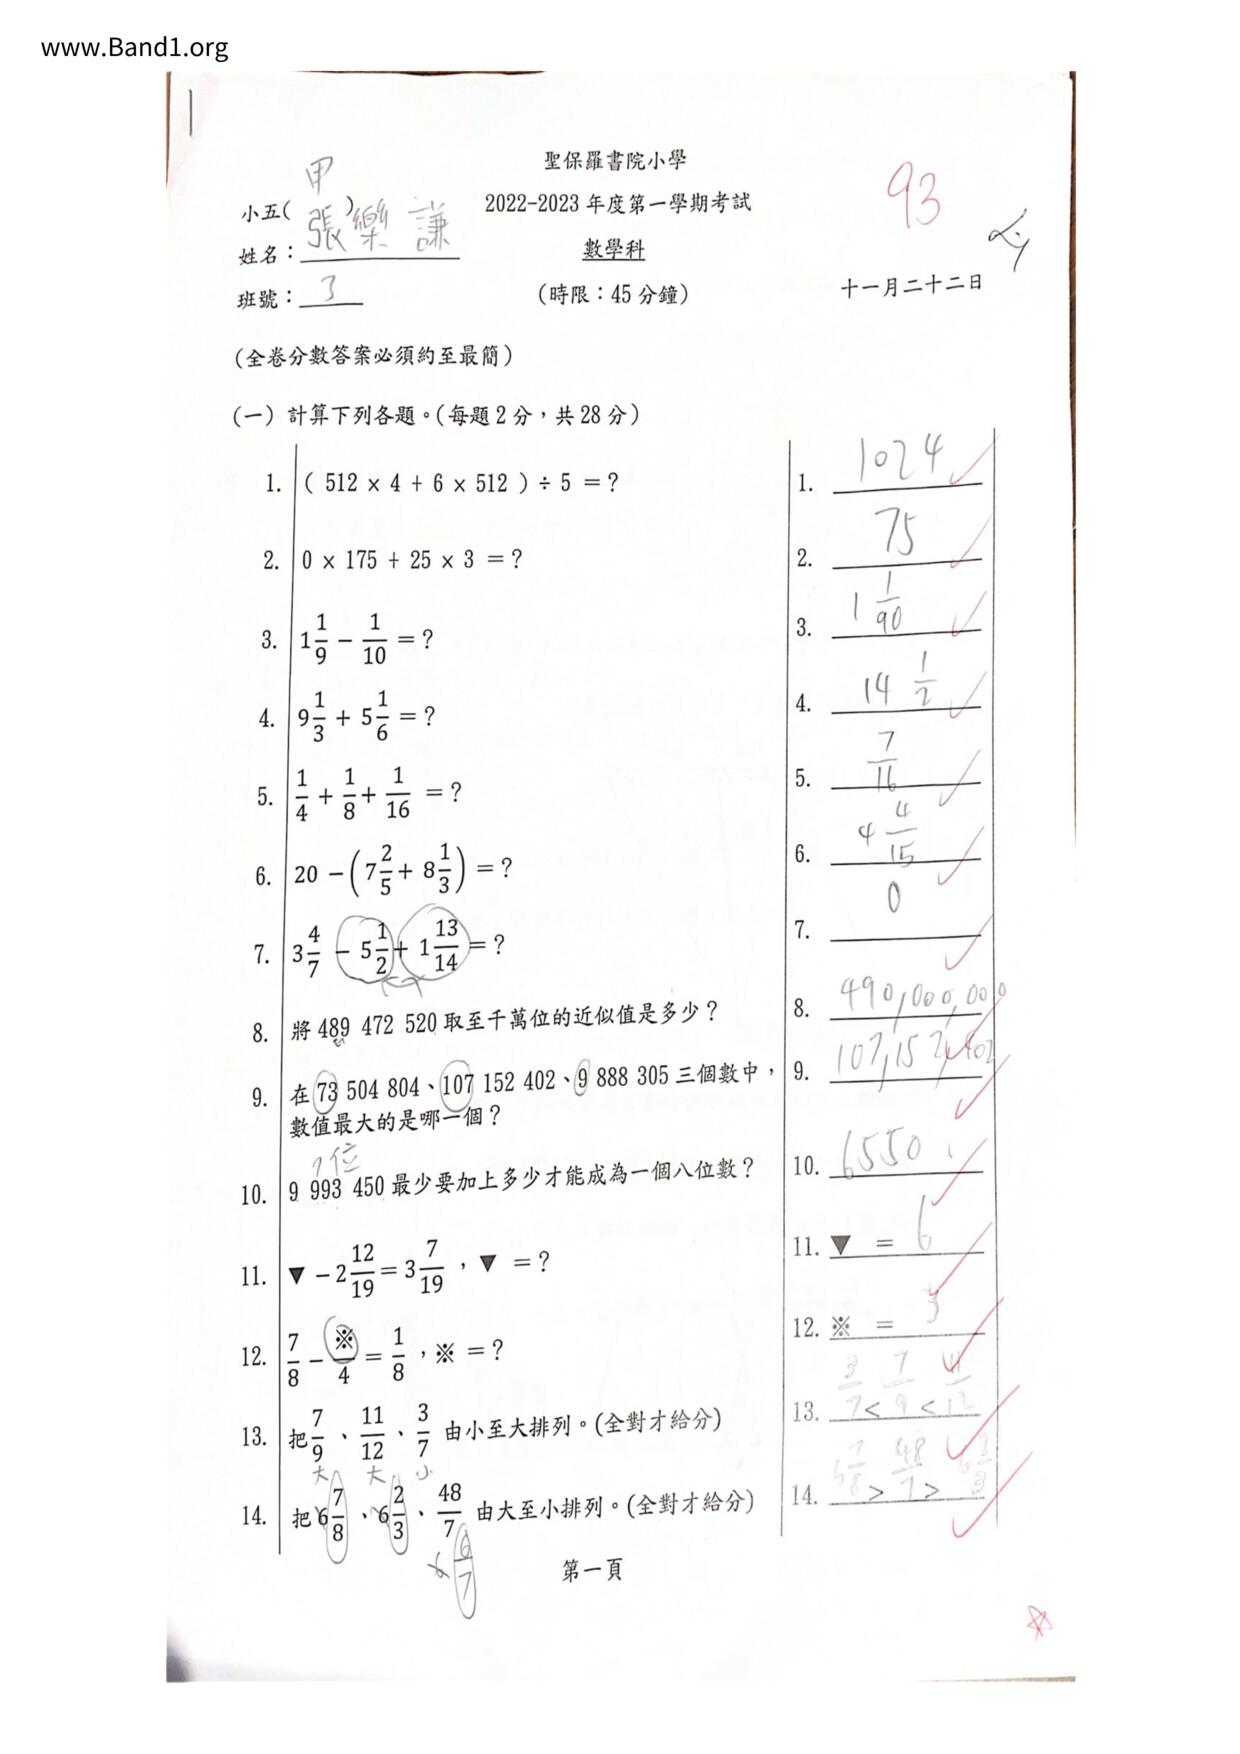 www.Band1.org
聖保羅書院小學
93
小五(甲)
2022-2023 年度第一學期考試
姓名：張樂謙
數學科
班號：3
(時限：45 分鐘)
十一月二十二日
(全卷分數答案必須約至最簡)
(一) 計算下列各題。(每題 2 分，共 28 分)
1. ( 512 × 4 + 6 × 512 ) ÷ 5 = ?
1. 1024
2. 0 × 175 + 25 × 3 = ?
2. 75
3. 1 1/9 − 1/10 = ?
3. 1 1/90
4. 9 1/3 + 5 1/6 = ?
4. 14 1/2
5. 1/4 + 1/8 + 1/16 = ?
5. 7/16
6. 20 − (7 2/5 + 8 1/3) = ?
6. 4 4/15
7. 3 4/7 − 5 1/2 + 1 13/14 = ?
7. 0
8. 將 489 472 520 取至千萬位的近似值是多少？
8. 490,000,000
9. 在 73 504 804、107 152 402、9 888 305 三個數中，
數值最大的是哪一個？
9. 107,152,402
7位
10. 9 993 450 最少要加上多少才能成為一個八位數？
10. 6550
11. ▼ − 2 12/19 = 3 7/19，▼ = ?
11. ▼ = 6
12. 7/8 − ※/4 = 1/8，※ = ?
12. ※ = 3
13. 把 7/9、11/12、3/7 由小至大排列。(全對才給分)
13. 3/7 < 7/9 < 11/12
大 大 小
14. 把 6 7/8、6 2/3、48/7 由大至小排列。(全對才給分)
14. 6 7/8 > 48/7 > 6 2/3
6 6/7
第一頁